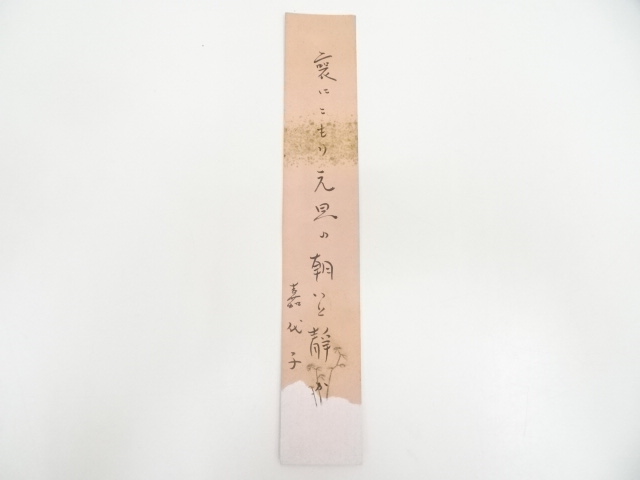 喪にこもり元旦の朝いと静か
嘉代子